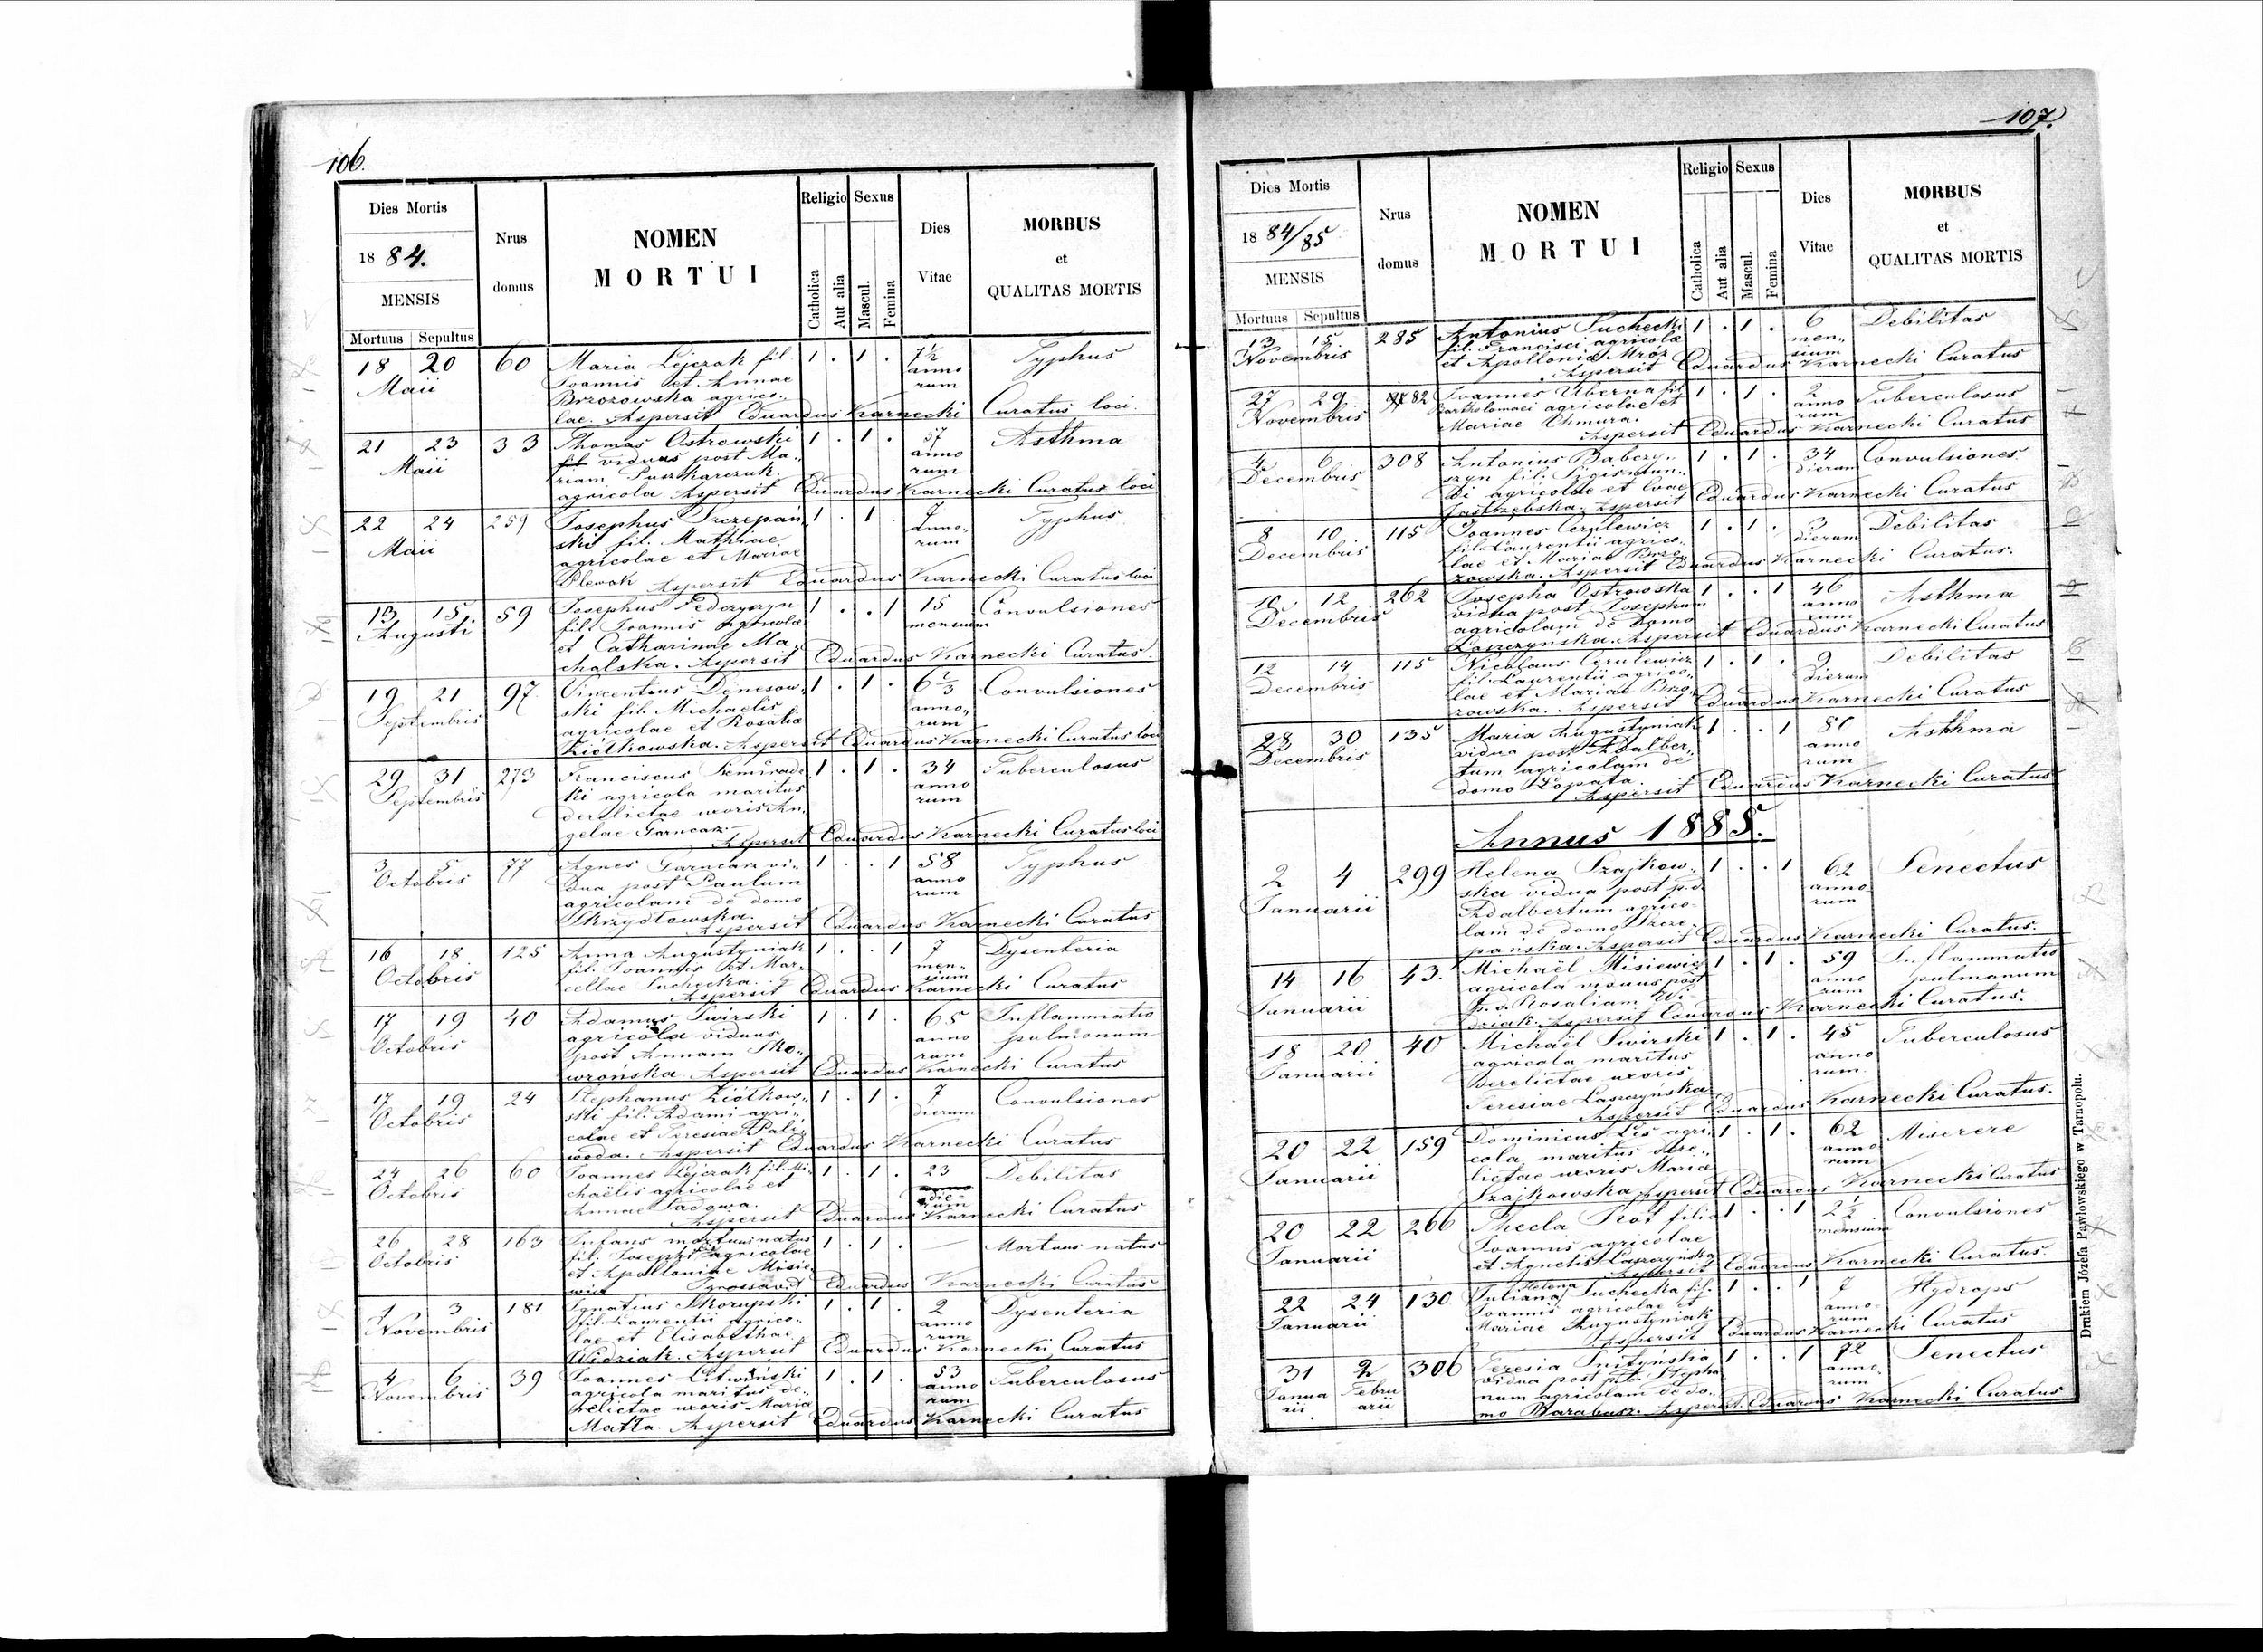 106.
Dies Mortis
1884.
MENSIS
Mortuus Sepultus
Nrus domus
NOMEN
MORTUI
Religio
Catholica
Aut alia
Sexus
Mascul.
Femina
Dies
Vitae
MORBUS
et
QUALITAS MORTIS
18 20 60 Maria Lejczak fil. 1 . 1 . 7½ Typhus
Maii Joannis et Annae anno
Brzozowska agrico„ rum
lae. Aspersit Eduardus Karnecki Curatus loci.
21 23 33 Thomas Ostrowski 1 . 1 . 57 Asthma
Maii viduus post Ma„ anno
riam Puszkarczuk. rum
agricola. Aspersit Eduardus Karnecki Curatus loci
22 24 259 Josephus Szczepań„ 1 . 1 . 7 Typhus
Maii ski fil. Mathiae anno„
agricolae et Mariae rum
Plewak Aspersit Eduardus Karnecki Curatus loci
13 15 59 Josephus Fedczyszyn 1 . . 1 15 Convulsiones
Augusti fil. Joannis agricolae mensium
et Catharinae Ma„
chalska. Aspersit Eduardus Karnecki Curatus.
19 21 97 Vincentius Denesow„ 1 . 1 . 6⅔ Convulsiones
Septembris ski fil. Michaelis anno„
agricolae et Rosalia rum
Ziółkowska. Aspersit Eduardus Karnecki Curatus loci
29 31 273 Franciscus Siemiradz 1 . 1 . 34 Tuberculosus
Septembris ki agricola maritus anno
derelictae uxoris An„ rum
gelae Garncarz. Aspersit Eduardus Karnecki Curatus loci
3 5 77 Agnes Garncarz vi„ 1 . . 1 58 Typhus
Octobris dua post Paulum anno
agricolam de domo rum
Skrzydłowska. Aspersit Eduardus Karnecki Curatus
16 18 125 Anna Augustyniak 1 . . 1 7 Dysenteria
Octobris fil. Joannis et Mar„ men„
cellae Suchecka. sium
Aspersit Eduardus Karnecki Curatus
17 19 40 Adamus Swirski 1 . 1 . 65 Inflammatio
Octobris agricola viduus anno pulmonum
post Annam Sko„ rum
wrońska. Aspersit Eduardus Karnecki Curatus
17 19 24 Stephanus Ziółkow„ 1 . 1 . 7 Convulsiones
Octobris ski fil. Adami agri„ dierum
colae et Teresiae Pali„
woda. Aspersit Eduardus Karnecki Curatus
24 26 60 Joannes Lejczak fil. Mi„ 1 . 1 . 23 Debilitas
Octobris chaëlis agricolae et die„
Annae Sadowa. rum
Aspersit Eduardus Karnecki Curatus
26 28 163 Infans mortuus natus 1 . 1 . — Mortuus natus
Octobris fil. Josephi agricolae
et Apolloniae Misie„
wicz Eduardus Karnecki Curatus
1 3 181 Ignatius Skorupski 1 . 1 . 2 Dysenteria
Novembris fil. Laurentii agrico„ anno
lae et Elisabethae rum
Widziak. Aspersit Eduardus Karnecki Curatus
4 6 39 Joannes Litwiński 1 . 1 . 53 Tuberculosus
Novembris agricola maritus de„ anno
relictae uxoris Maria rum
Matla. Aspersit Eduardus Karnecki Curatus
107.
Dies Mortis
1884/85
MENSIS
Mortuus Sepultus
Nrus domus
NOMEN
MORTUI
Religio
Catholica
Aut alia
Sexus
Mascul.
Femina
Dies
Vitae
MORBUS
et
QUALITAS MORTIS
13 15. 285 Antonius Suchecki 1 . 1 . 6 Debilitas
Novembris fil. Francisci agricolae men„
et Apollonia Mróz sium
Aspersit Eduardus Karnecki Curatus
27 29. 82 Joannes Uberna fil. 1 . 1 . 2 Tuberculosus
Novembris Bartholomaei agricolae et anno
Mariae Chmura. rum
Aspersit Eduardus Karnecki Curatus
4 6 308 Antonius Babczy„ 1 . 1 . 34 Convulsiones
Decembris szyn fil. Sigismun„ dierum
di agricolae et Evae
Jastrzębska. Aspersit Eduardus Karnecki Curatus
8 10 115 Joannes Cerulewicz 1 . 1 . 3 Debilitas
Decembris fil. Laurentii agrico„ dierum
lae et Mariae Brzo„
zowska. Aspersit Eduardus Karnecki Curatus.
10 12 262 Josepha Ostrowska 1 . . 1 46 Asthma
Decembris vidua post Josephum anno
agricolam de domo rum
Łaszczyńska. Aspersit Eduardus Karnecki Curatus
12 14 115 Nicolaus Cerulewicz 1 . 1 . 9 Debilitas
Decembris fil. Laurentii agrico„ dierum
lae et Mariae Brzo„
zowska. Aspersit Eduardus Karnecki Curatus
28 30 135 Maria Augustyniak 1 . . 1 80 Asthma
Decembris vidua post Adalber„ anno
tum agricolam de rum
domo Łopata.
Aspersit Eduardus Karnecki Curatus
Annus 1885.
2 4 299 Helena Szajkow„ 1 . . 1 62 Senectus
Januarii ska vidua post p.d. anno
Adalbertum agrico„ rum
lam de domo Szcze„
pańska. Aspersit Eduardus Karnecki Curatus.
14 16 43. Michaël Misiewicz 1 . 1 . 59 Inflammatio
Januarii agricola viduus post anno pulmonum
p.d. Rosaliam Wi„ rum
dziak. Aspersit Eduardus Karnecki Curatus.
18 20 40 Michaël Swirski 1 . 1 . 45 Tuberculosus
Januarii agricola maritus anno
derelictae uxoris rum.
Teresiae Łaszczyńska
Aspersit Eduardus Karnecki Curatus.
20 22 159 Dominicus Lis agri„ 1 . 1 . 62 Miserere
Januarii cola maritus dere„ anno
lictae uxoris Mariae rum
Szajkowska. Aspersit Eduardus Karnecki Curatus
20 22 266 Thecla Kot filia 1 . . 1 2½ Convulsiones
Januarii Joannis agricolae mensium
et Agnetis Łaszczyńska
Aspersit Eduardus Karnecki Curatus.
22 24 130 Juliana Helena Suchecka fil. 1 . . 1 7 Hydrops
Januarii Joannis agricolae et anno„
Mariae Augustyniak rum
Aspersit Eduardus Karnecki Curatus
31 2 306 Teresia 1 . . 1 72 Senectus
Janua Febru vidua post p.d. Stepha„ anno„
rii arii num agricolam de do„ rum
mo Barabasz. Aspersit Eduardus Karnecki Curatus
Drukiem Józefa Pawłowskiego w Tarnopolu.